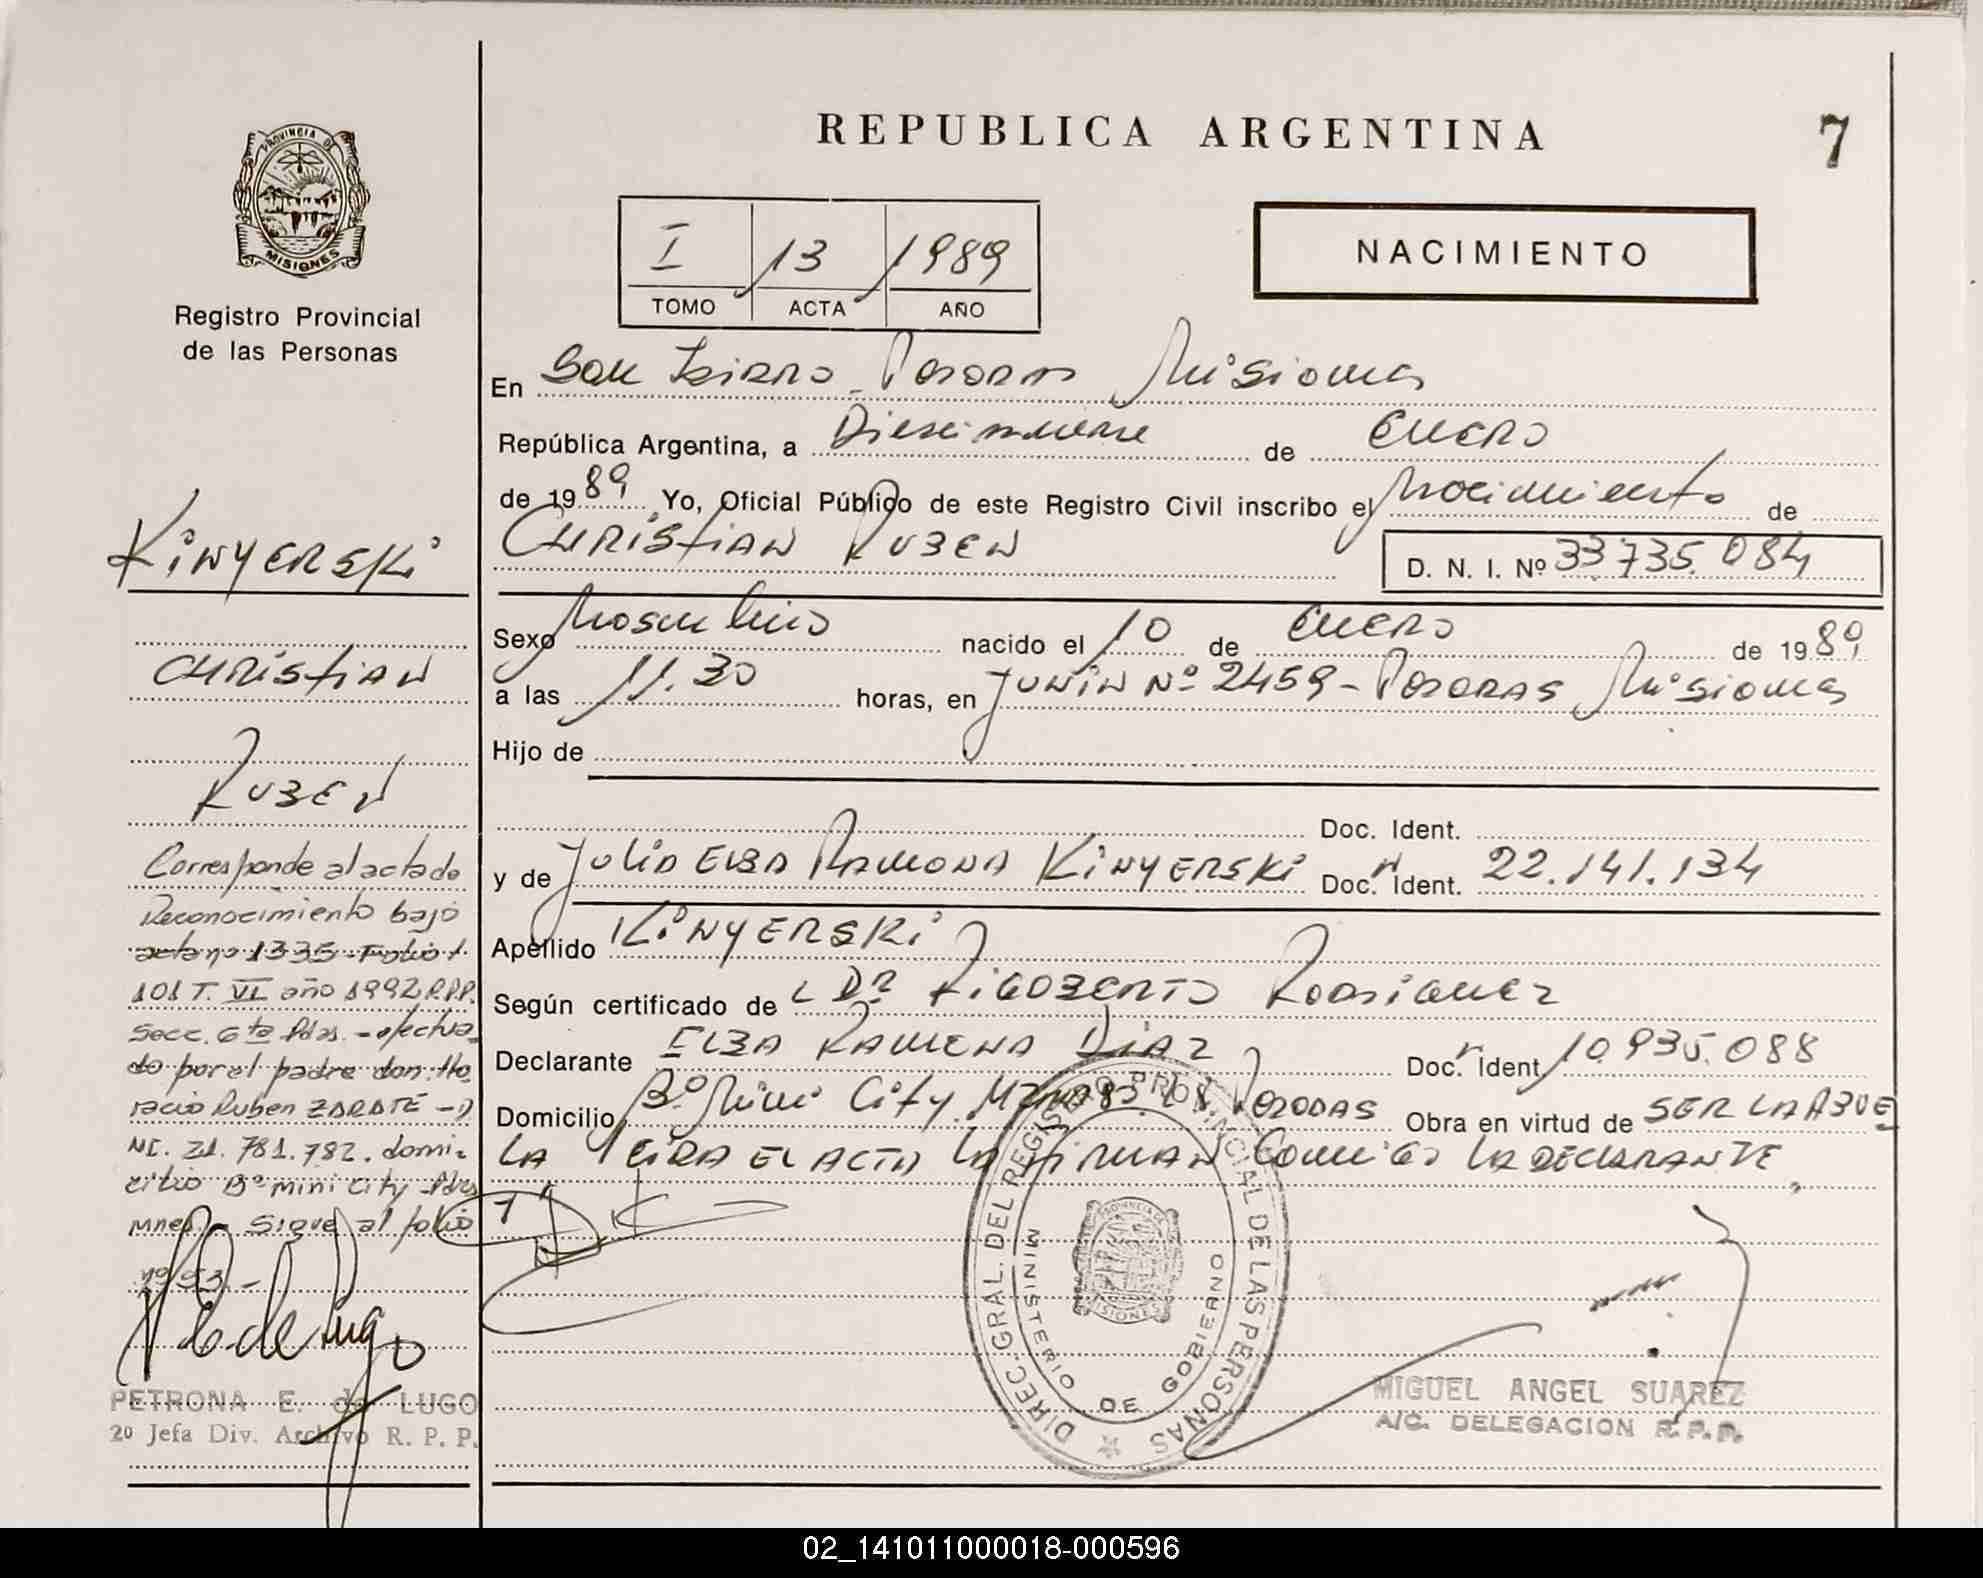 REPUBLICA ARGENTINA
7
PROVINCIA DE
MISIONES
Registro Provincial
de las Personas
I 13 1989
TOMO ACTA AÑO
NACIMIENTO
En San Isidro - Posadas Misiones
República Argentina, a Diecinueve de Enero
de 1989 Yo, Oficial Público de este Registro Civil inscribo el Nacimiento de
CHRISTIAN RUBEN
D. N. I. Nº 33.735.084
Sexo Masculino nacido el 10 de Enero de 1989
a las 11.30 horas, en JUNIN Nº 2459 - POSADAS Misiones
Hijo de
Doc. Ident.
y de Julia ELBA RAMONA KINYERSKI Doc. Ident. 22.141.134
Apellido KINYERSKI
Según certificado de DR RIGOBERTO RODRIGUEZ
Declarante ELBA RAMONA DIAZ Doc. Ident 10.935.088
Domicilio Bº Mini City POSADAS Obra en virtud de SER LA ABUE
LA LEIDA EL ACTA LA FIRMAN Conmigo LA DECLARANTE
KINYERSKI
CHRISTIAN
RUBEN
Corresponde al acta de
Reconocimiento bajo
acta nº 1335 - Folio
101 T. VI año 1992 R.P.P.
Secc. 6ta Pdas. - efectua
do por el padre don Ho
racio Ruben ZARATE - D
NI. 21.781.782. domi-
cilio Bº mini City - Pdas
mnes. - Sigue al folio
nº 93.-
PETRONA E. de LUGO
2º Jefa Div. Archivo R. P. P.
DIREC. GRAL. DEL REGISTRO PROVINCIAL DE LAS PERSONAS
MINISTERIO DE GOBIERNO
PROVINCIA DE
MISIONES
MIGUEL ANGEL SUAREZ
A/C. DELEGACION R. P. P.
02_141011000018-000596